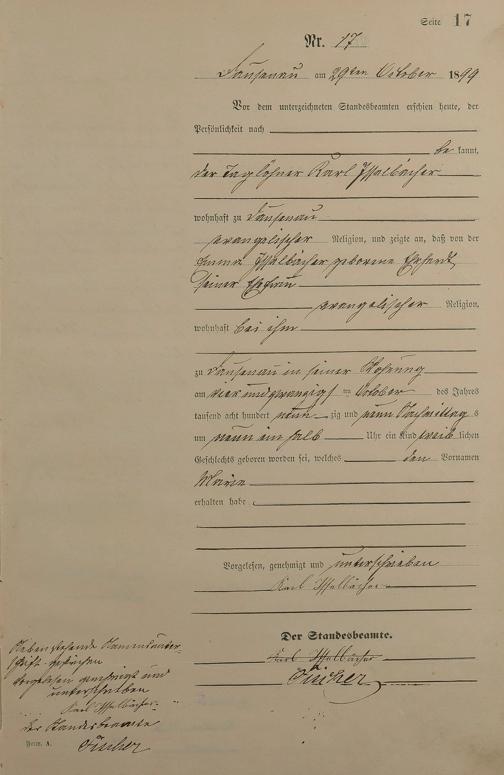 Seite 17
Nr. 17
Dausenau am 29ten October 1899
Vor dem unterzeichneten Standesbeamten erschien heute, der
Persönlichkeit nach
be kannt,
der Taglöhner Karl Isselbächer
wohnhaft zu Dausenau
evangelischer Religion, und zeigte an, daß von der
Isselbächer geborene
seiner Ehefrau
evangelischer Religion,
wohnhaft bei ihm
zu Dausenau in seiner Wohnung
am vier und zwanzigst = October des Jahres
tausend acht hundert neun zig und neun Nachmittag s
um neun ein halb Uhr ein Kind weib lichen
Geschlechts geboren worden sei, welches den Vornamen
Marie
erhalten habe
Vorgelesen, genehmigt und unterschrieben
Karl Isselbächer
Der Standesbeamte.
Karl Isselbächer
Fischer
Nebenstehende Namensunter-
schrift gestrichen
vorgelesen genehmigt und
unterschrieben
Karl Isselbächer
der Standesbeamte
Fischer
Form. A.